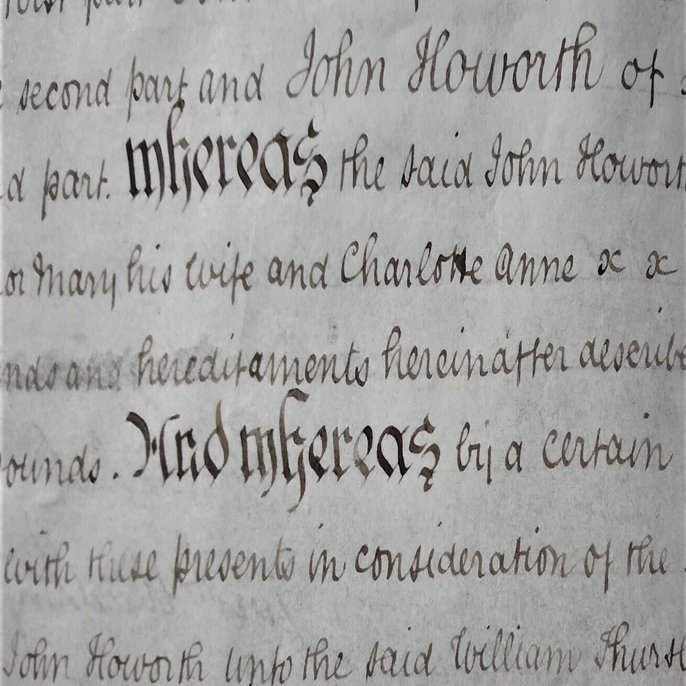 second part and John Howorth of
part. whereas the said John Howort
or Mary his wife and Charlotte Anne x x
nds and hereditaments hereinafter describe
ounds. And whereas by a certain
with these presents in consideration of the
John Howorth unto the said William Thurst